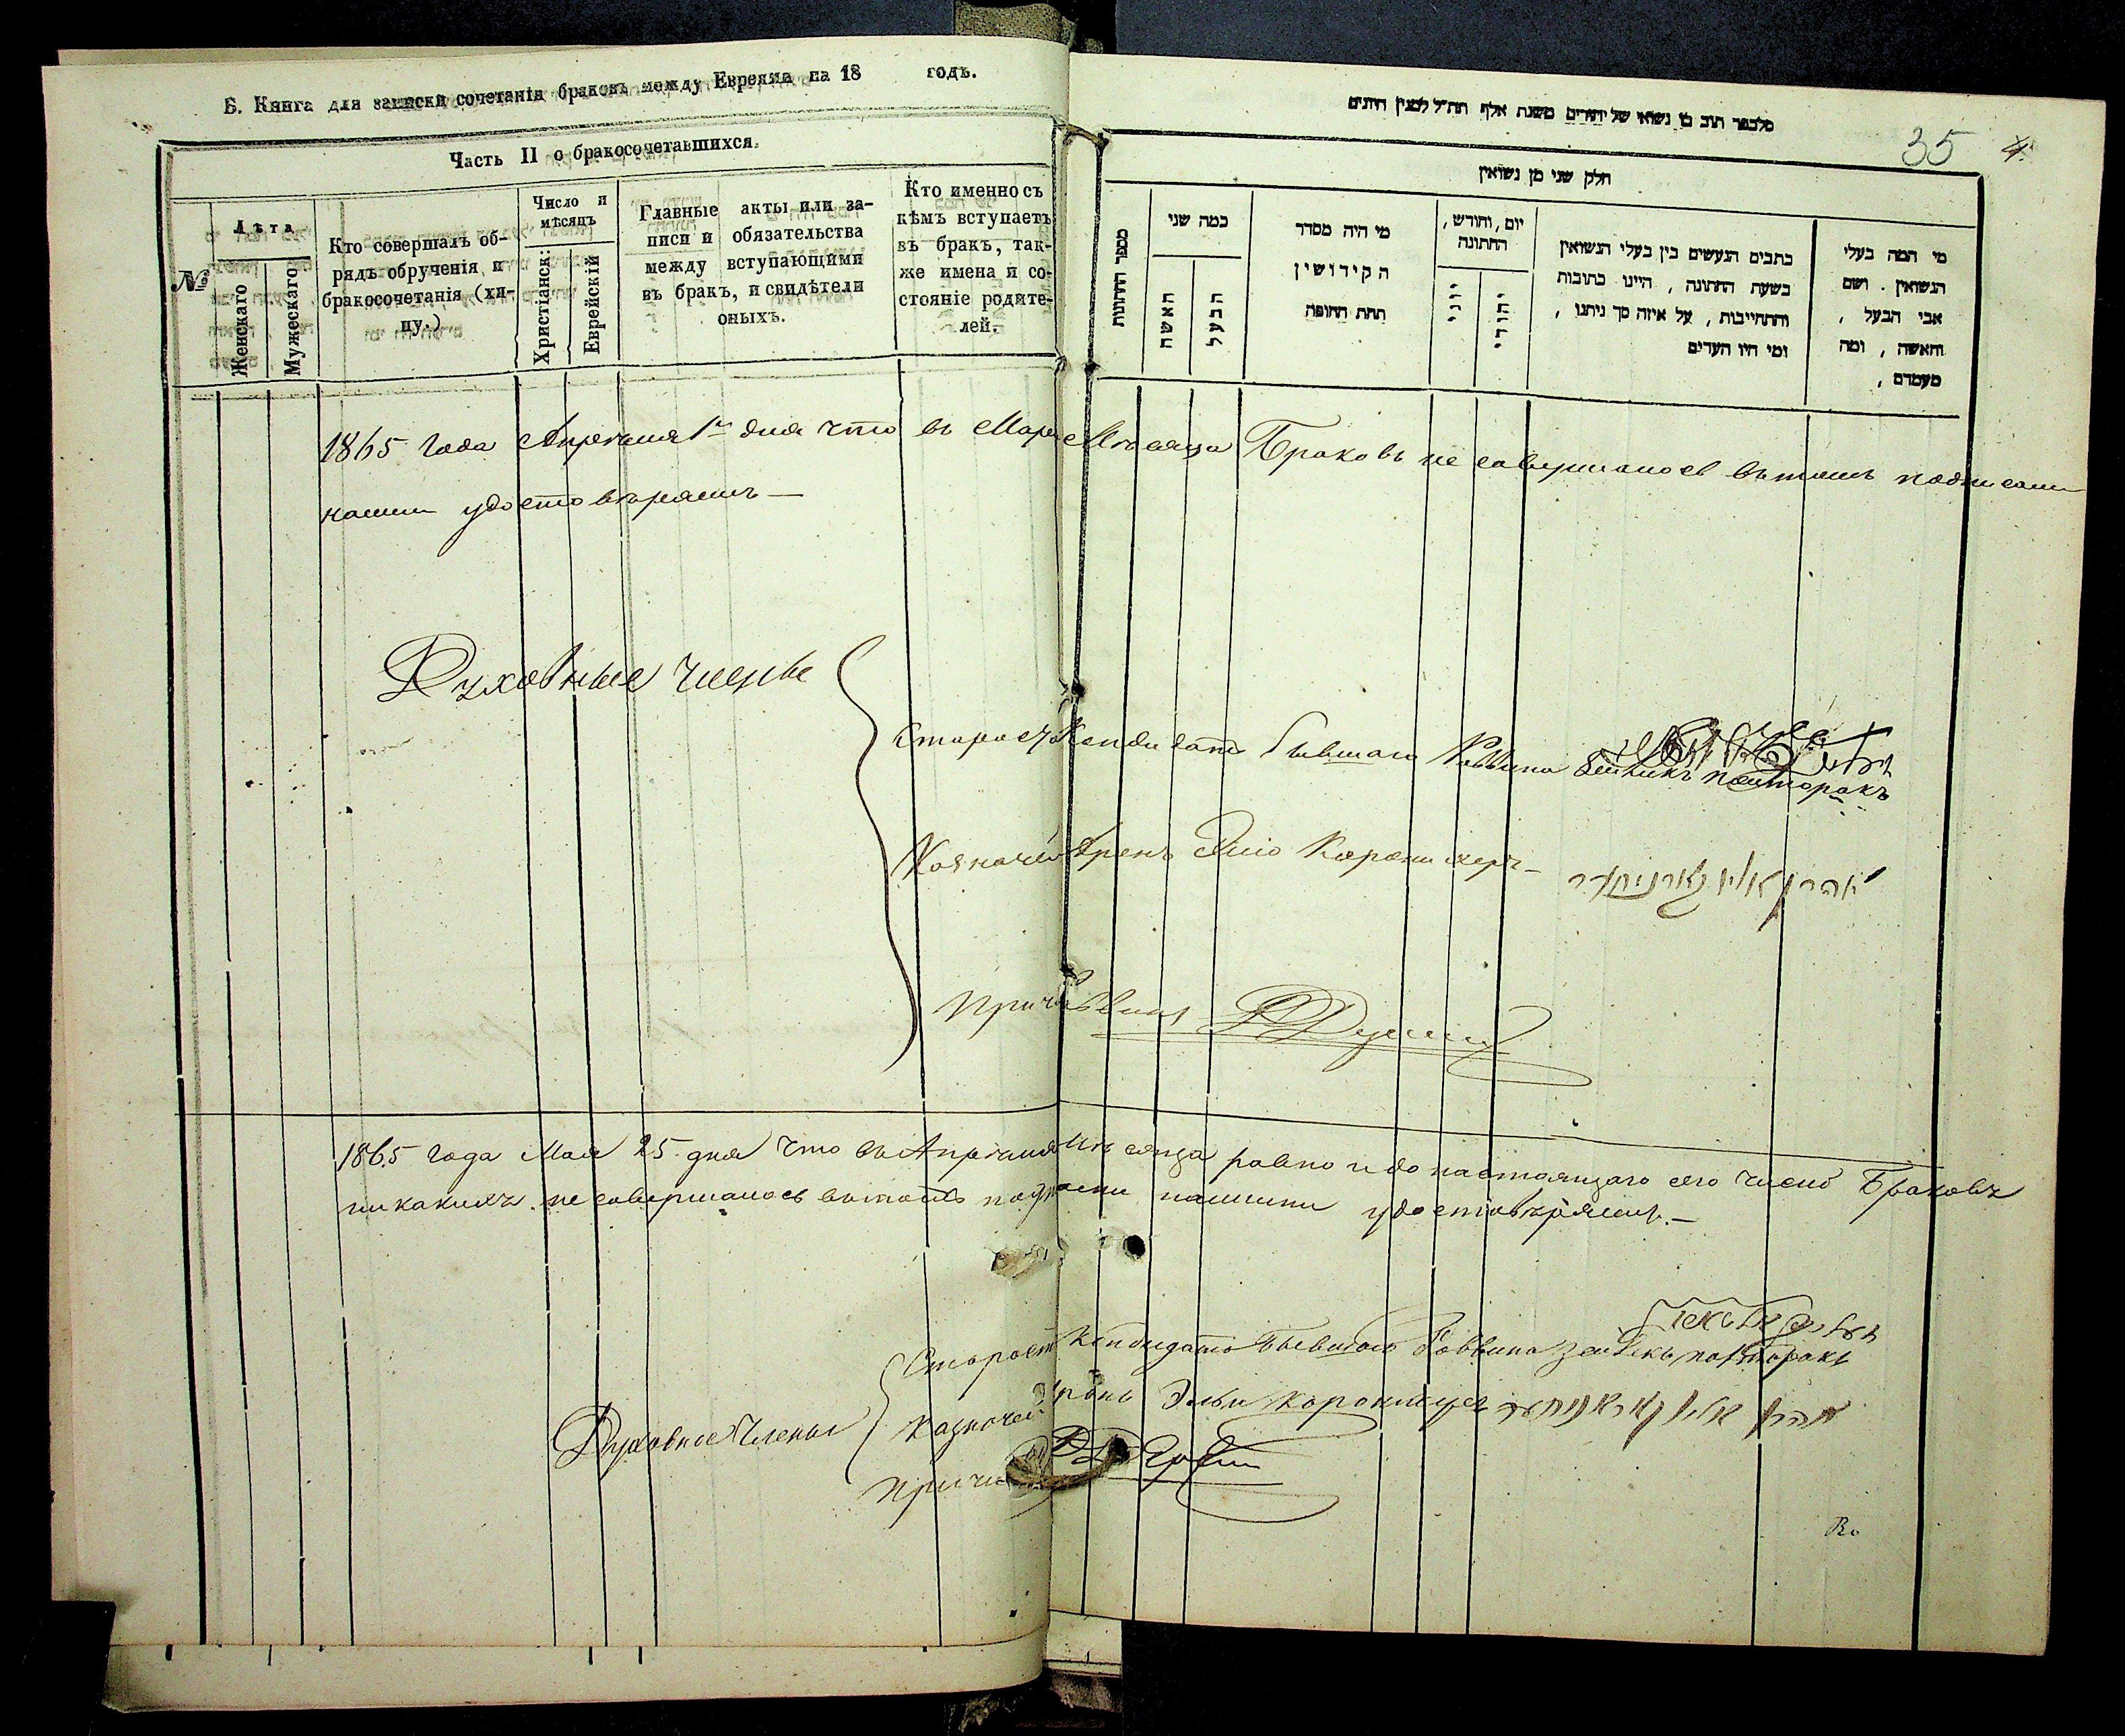 Б. Книга для записки сочетанія браковъ между Евреями на 18 годъ.
Часть II о бракосочетавшихся.
№
Лѣта
Женскаго
Мужескаго
Кто совершалъ об-
рядъ обрученія и
бракосочетанія (хи-
пу.)
Число и
мѣсяцъ
Христіанск:
Еврейскій
Главные акты или за-
писи и обязательства
между вступающими
въ бракъ, и свидѣтели
оныхъ.
Кто именно съ
кѣмъ вступаетъ
въ бракъ, так-
же имена и со-
стояніе родите-
лей.
35 4.
חלק שני מן נשואין
מספר החתונות
כמה שני
האשה
הבעל
מי היה מסדר
הקידושין
תחת החופה
יום, וחודש,
החתונה
יוני
יהודי
כתבים הנעשים בין בעלי הנשואין
בשעת החתונה, היינו כתובות
והתחייבות, על איזה סך ניתנו,
ומי היו העדים
מי המה בעלי
הנשואין. ושם
אבי הבעל,
והאשה, ומה
מעמדם,
1865 года Апрѣля 1го дня что въ Мартѣ Мѣсяца Браковъ не совершалось въ томъ подписами
нашими удостовѣряемъ —
Духовные члены
Староста Кандидатъ бывшаго Раввина Зейликъ
Казначей Аренъ
אהרן אלי
Причетъ
1865 года Мая 25 дня что въ Апрѣлѣ Мѣсяца равно и до настоящаго сего числа Браковъ
никакихъ не совершалось въ томъ подписами нашими удостовѣряемъ.—
Духовные Члены
Староста Кандидатъ бывшаго Раввина
Казначей Аронъ Эльи
אהרן אלי
Ro